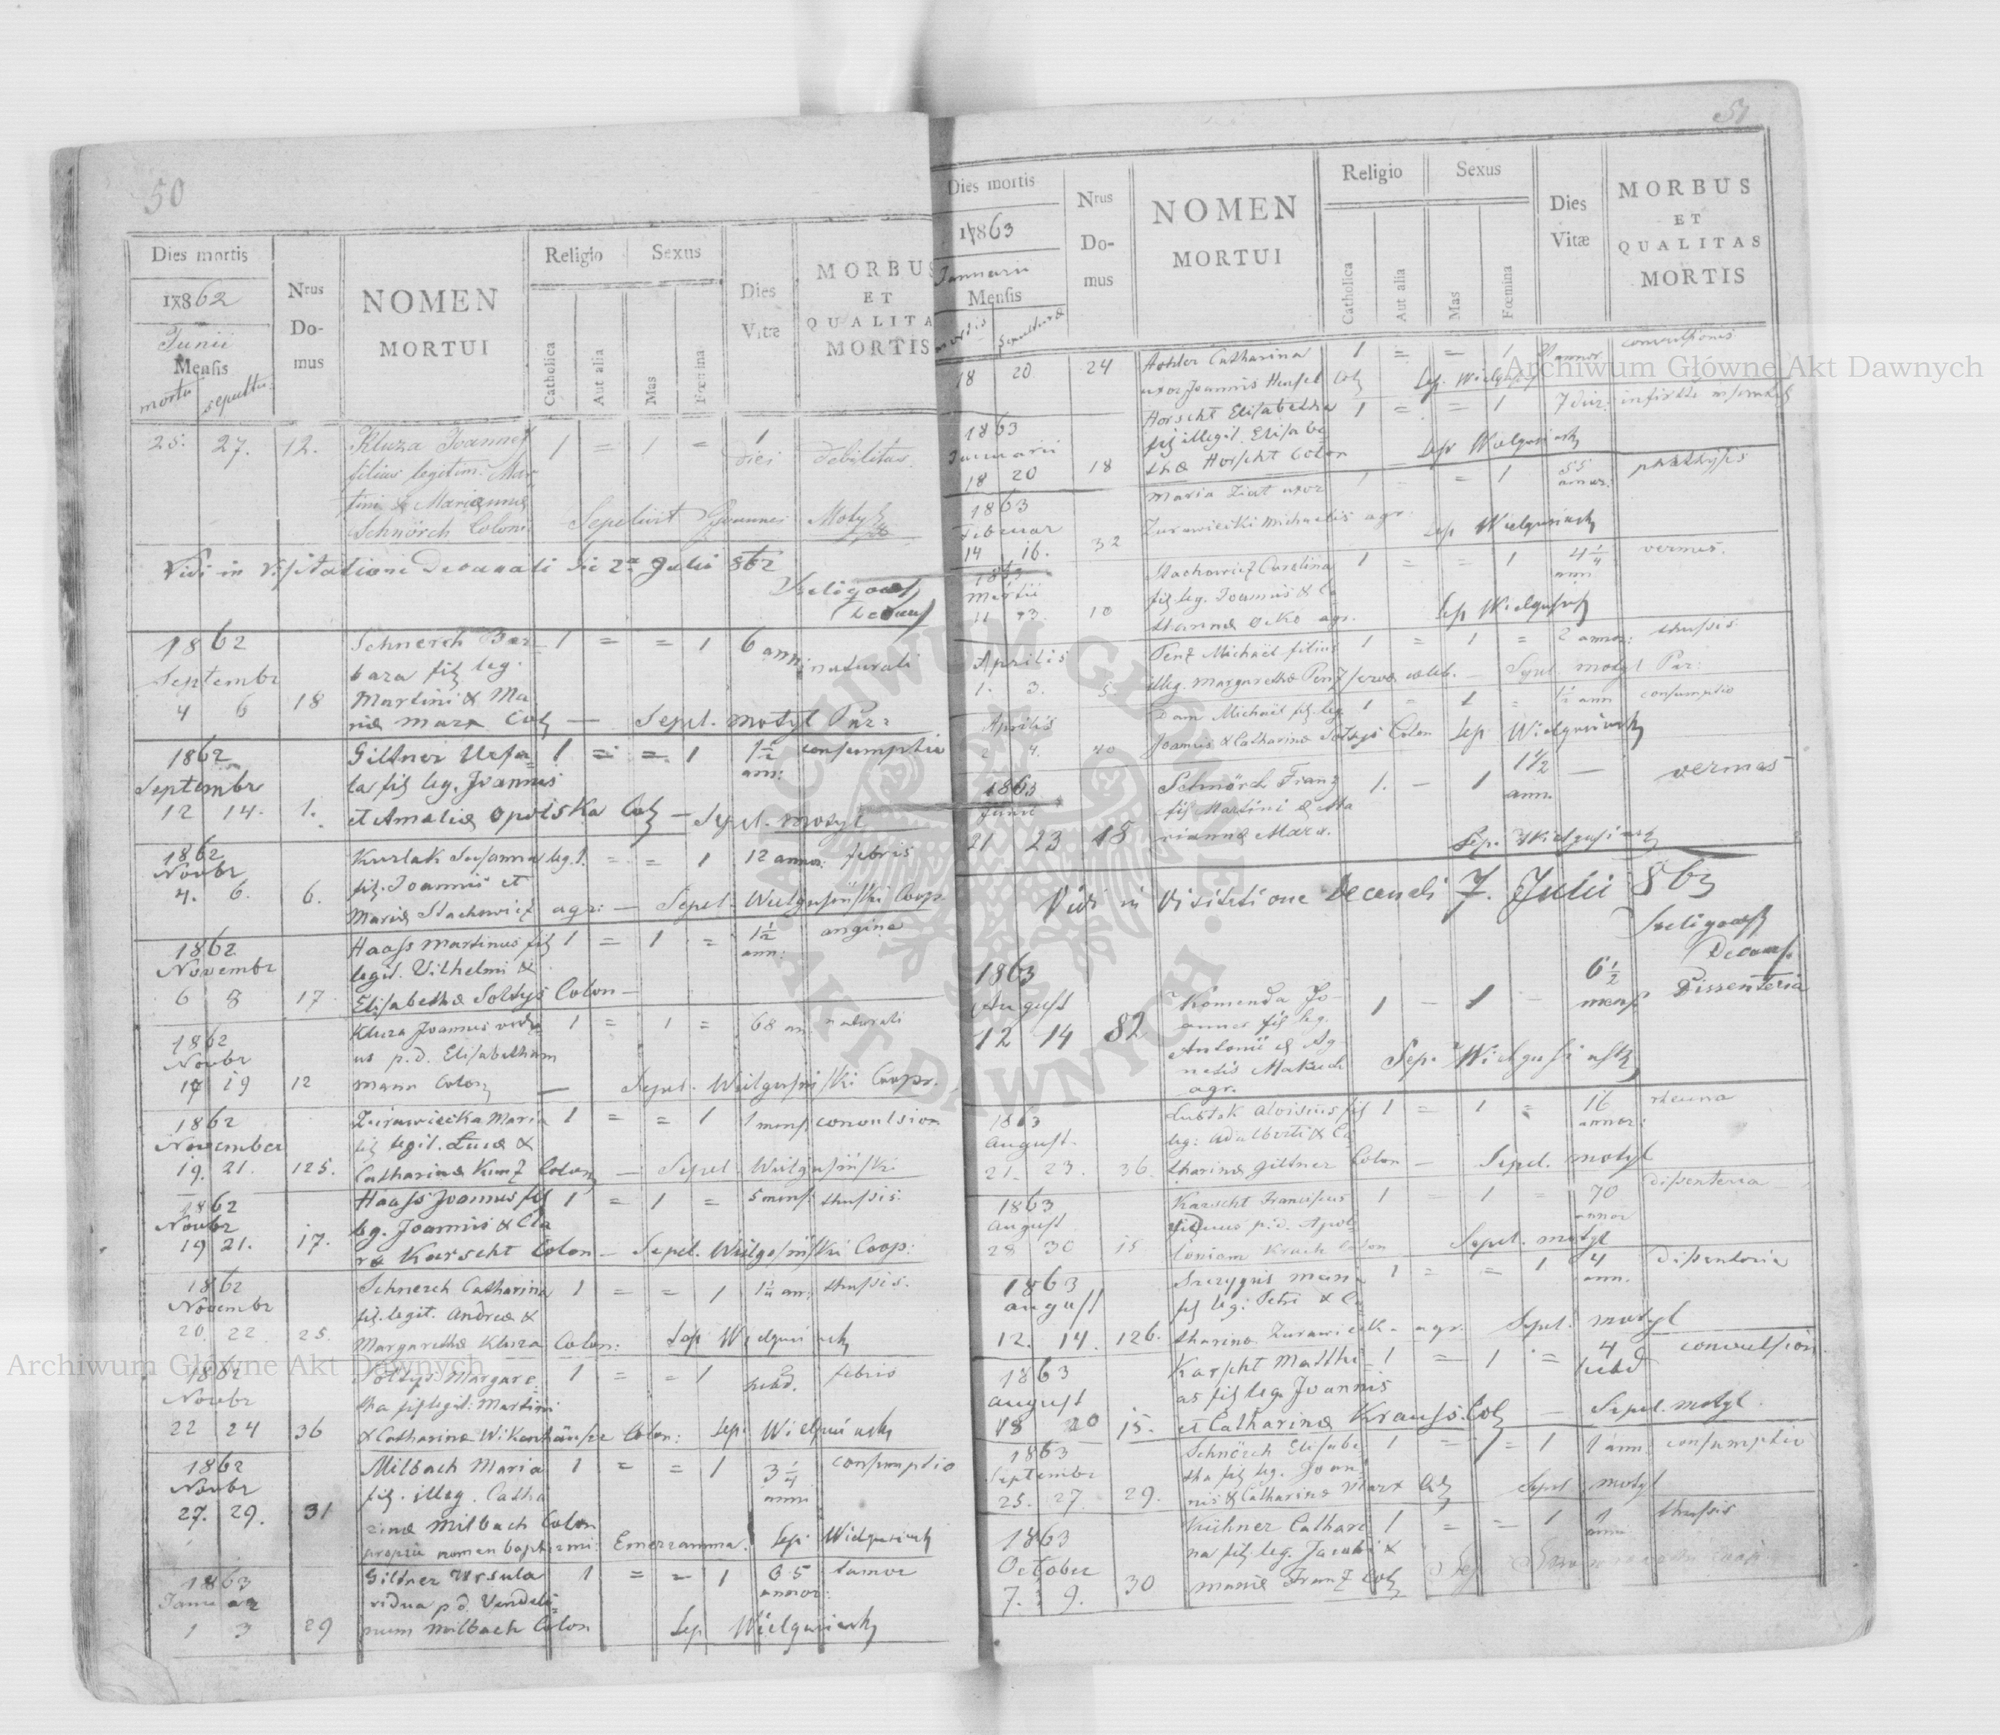 50
Dies mortis
1862
Junii
Mensis
mortis sepultu:
Nrus Domus
NOMEN
MORTUI
Religio
Catholica
Aut alia
Sexus
Mas
Fœmina
Dies
Vitæ
MORBUS
ET
QUALITA
MORTIS
25. 27. 12. Kluza Joannes 1 = 1 = 1 diei debilitas
filius legitim. Mar
tini & Marianna
Schnörch Coloni Sepelivit Joannes Motyl
Vidi in Visitatione Decanali die 2a Julii 862
Decanus
1862
Septembr
4 6 18 Schnerch Bar 1 = = 1 6 anni naturali
bara fil leg.
Martini & Ma
riæ Marx Col — Sepel. Motyl Par:
1862
Septembr
12 14. 1. Giltner Ursu 1 = = 1 1½ ann: consumptio
la fil leg. Joannis
et Amaliæ Opolska Col — Sepel. Motyl
1862
Novbr
4. 6. 6. Kurlak Susanna leg. 1. = = 1 12 annor: febris
fil. Joannis et
Mariæ Stachowicz agr: — Sepel. Wielgusiński Coop.
1862
Novembr
6 8 17 Haass Martinus fil 1 = 1 = 1½ ann: angina
legit. Vilhelmi &
Elisabethæ Soltys Colon —
1862
Novbr
17 19 12 Kluza Joannes vidu 1 = 1 = 68 an naturali
us p.d. Elisabetham
Mann Colon — Sepel. Wielgusiński Coopr.
1862
November
19. 21. 125. Zurawiecka Maria 1 = = 1 1 mens convulsion
fil legit. Lucæ &
Catharinæ Kunz Colon — Sepel. Wielgusiński
1862
Novbr
19 21. 17. Haass Joannes fil 1 = 1 = 5 mens: thussis.
leg. Joannis & Cla
ræ Karscht Colon — Sepel. Wielgosiński Coop:
1862
Novembr
20. 22. 25. Schnerch Catharina 1 = = 1 thussis.
fil. legit. Andreæ &
Margarethæ Kluza Colon: Sep Wielgusiński
1862
Novbr
22 24 36 Soltys Margare 1 = = 1 hebd. febris
tha fil legit: Martini
& Catharinæ Wikenhäuser Colon: Sep: Wielgusiński
1862
Novbr
27. 29. 31 Milbach Maria 1 = = 1 3¼ anni consumptio
fil. illeg. Catha
rinæ Milbach Colon
proprie nomen baptismi: Emeranna. Sep: Wielgusiński
1863
Januar
1 3 29 Giltner Ursula 1 = = 1 65 annor: tumor
vidua p d. Vendeli
num Milbach Colon Sep Wielgusiński
51
Dies mortis
1863
Januarii
Mensis
mortis sepulturæ
Nrus Domus
NOMEN
MORTUI
Religio
Catholica
Aut alia
Sexus
Mas
Fœmina
Dies
Vitæ
MORBUS
ET
QUALITAS
MORTIS
18 20 24 Catharina 1 = = 1 annor convulsionis
uxor Joannis Hensel Col Sep. Wielgusiński
1863
Januarii
18 20 18 Horscht Elisabetha 1 = = 1 7 dier.
fil illegit. Elisabe
thæ Horscht Colon Sep Wielgusiński
1863
Februar
14 16. 32 Maria Ziat uxor 1 = = 1 55 annor. phthysis
Zurawiecki Michaelis agr: Sep Wielgusiński
1863
Martii
11 13. 10 Stachowicz Carolina 1 = = 1 4¼ ann vermes.
fil leg. Joannis & Ca
tharinæ Ocko agr. Sep Wielgusiński
Aprilis
1. 3. 5 Penz Michaël filius 1 = 1 = 2 annor: thussis
illeg. Margarethæ Penz — Sepel. Motyl Par:
Aprilis
2 4. 40 Dam Michael fil leg 1 = 1 = 1½ ann consumptio
Joannis & Catharinæ Soltys Colon Sep Wielgusiński
1863
Junii
21 23 18 Schnörch Franz 1. — 1 1½ ann. — vermes
fil Martini & Ma
riannæ Marx. Sep. Wielgusiński
Vidi in Visitatione Decanali 7. Julii 863
Decanus
1863
August
12 14 82 Komenda Jo 1 — 1 — 6½ mens Dissenteria
annes fil leg.
Antonii & Ag
netis Makuch
agr. Sep. Wielgusiński
1863
August.
21. 23. 36. Lubtak Aloisius fil 1 = 1 = 16 annor: rheuma
leg: Adalberti & Ca
tharinæ Giltner Colon — Sepel. Motyl
1863
August
28 30 15 Karscht Franciscus 1 = 1 = 70 annor dissenteria
viduus p.d. Apol
loniam Krach Colon Sepel. Motyl
1863
August
12. 14. 126. Szczygus Maria 1 = = 1 4 ann. dissenteria
fil leg: Petri & Ca
tharinæ Zurawiecka agr. Sepel. Motyl
1863
August
18 20 15. Karscht Matthi 1 = 1 = 4 hebd convulsion.
as fil leg. Joannis
et Catharinæ Krauss Col — Sepel. Motyl.
1863
Septembr
25. 27. 29. Schnörch Elisabe 1 = = 1 1 ann consumptio
tha fil leg. Joan
nis & Catharinæ Marx Col Sepel Motyl
1863
October
7. 9. 30 Kühner Cathari 1 = = 1 1 anni thussis
na fil. leg. Jacobi &
Mariæ Franz Col Sep
Archiwum Główne Akt Dawnych
Archiwum Główne Akt Dawnych
ARCHIWUM GŁÓWNE AKT DAWNYCH